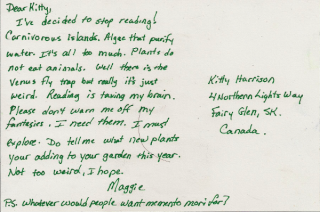 Dear Kitty,
I've decided to stop reading!
Carnivorous islands. Algae that purify
water. It's all too much. Plants do
not eat animals. Well there is the
Venus fly trap but really it's just
weird. Reading is taxing my brain.
Please don't warn me off my
fantasies. I need them. I must
explore. Do tell me what new plants
your adding to your garden this year.
Not too weird, I hope.
Maggie
P.S. Whatever would people want memento mori for?
Kitty Harrison
4 Northern Lights Way
Fairy Glen, SK.
Canada.